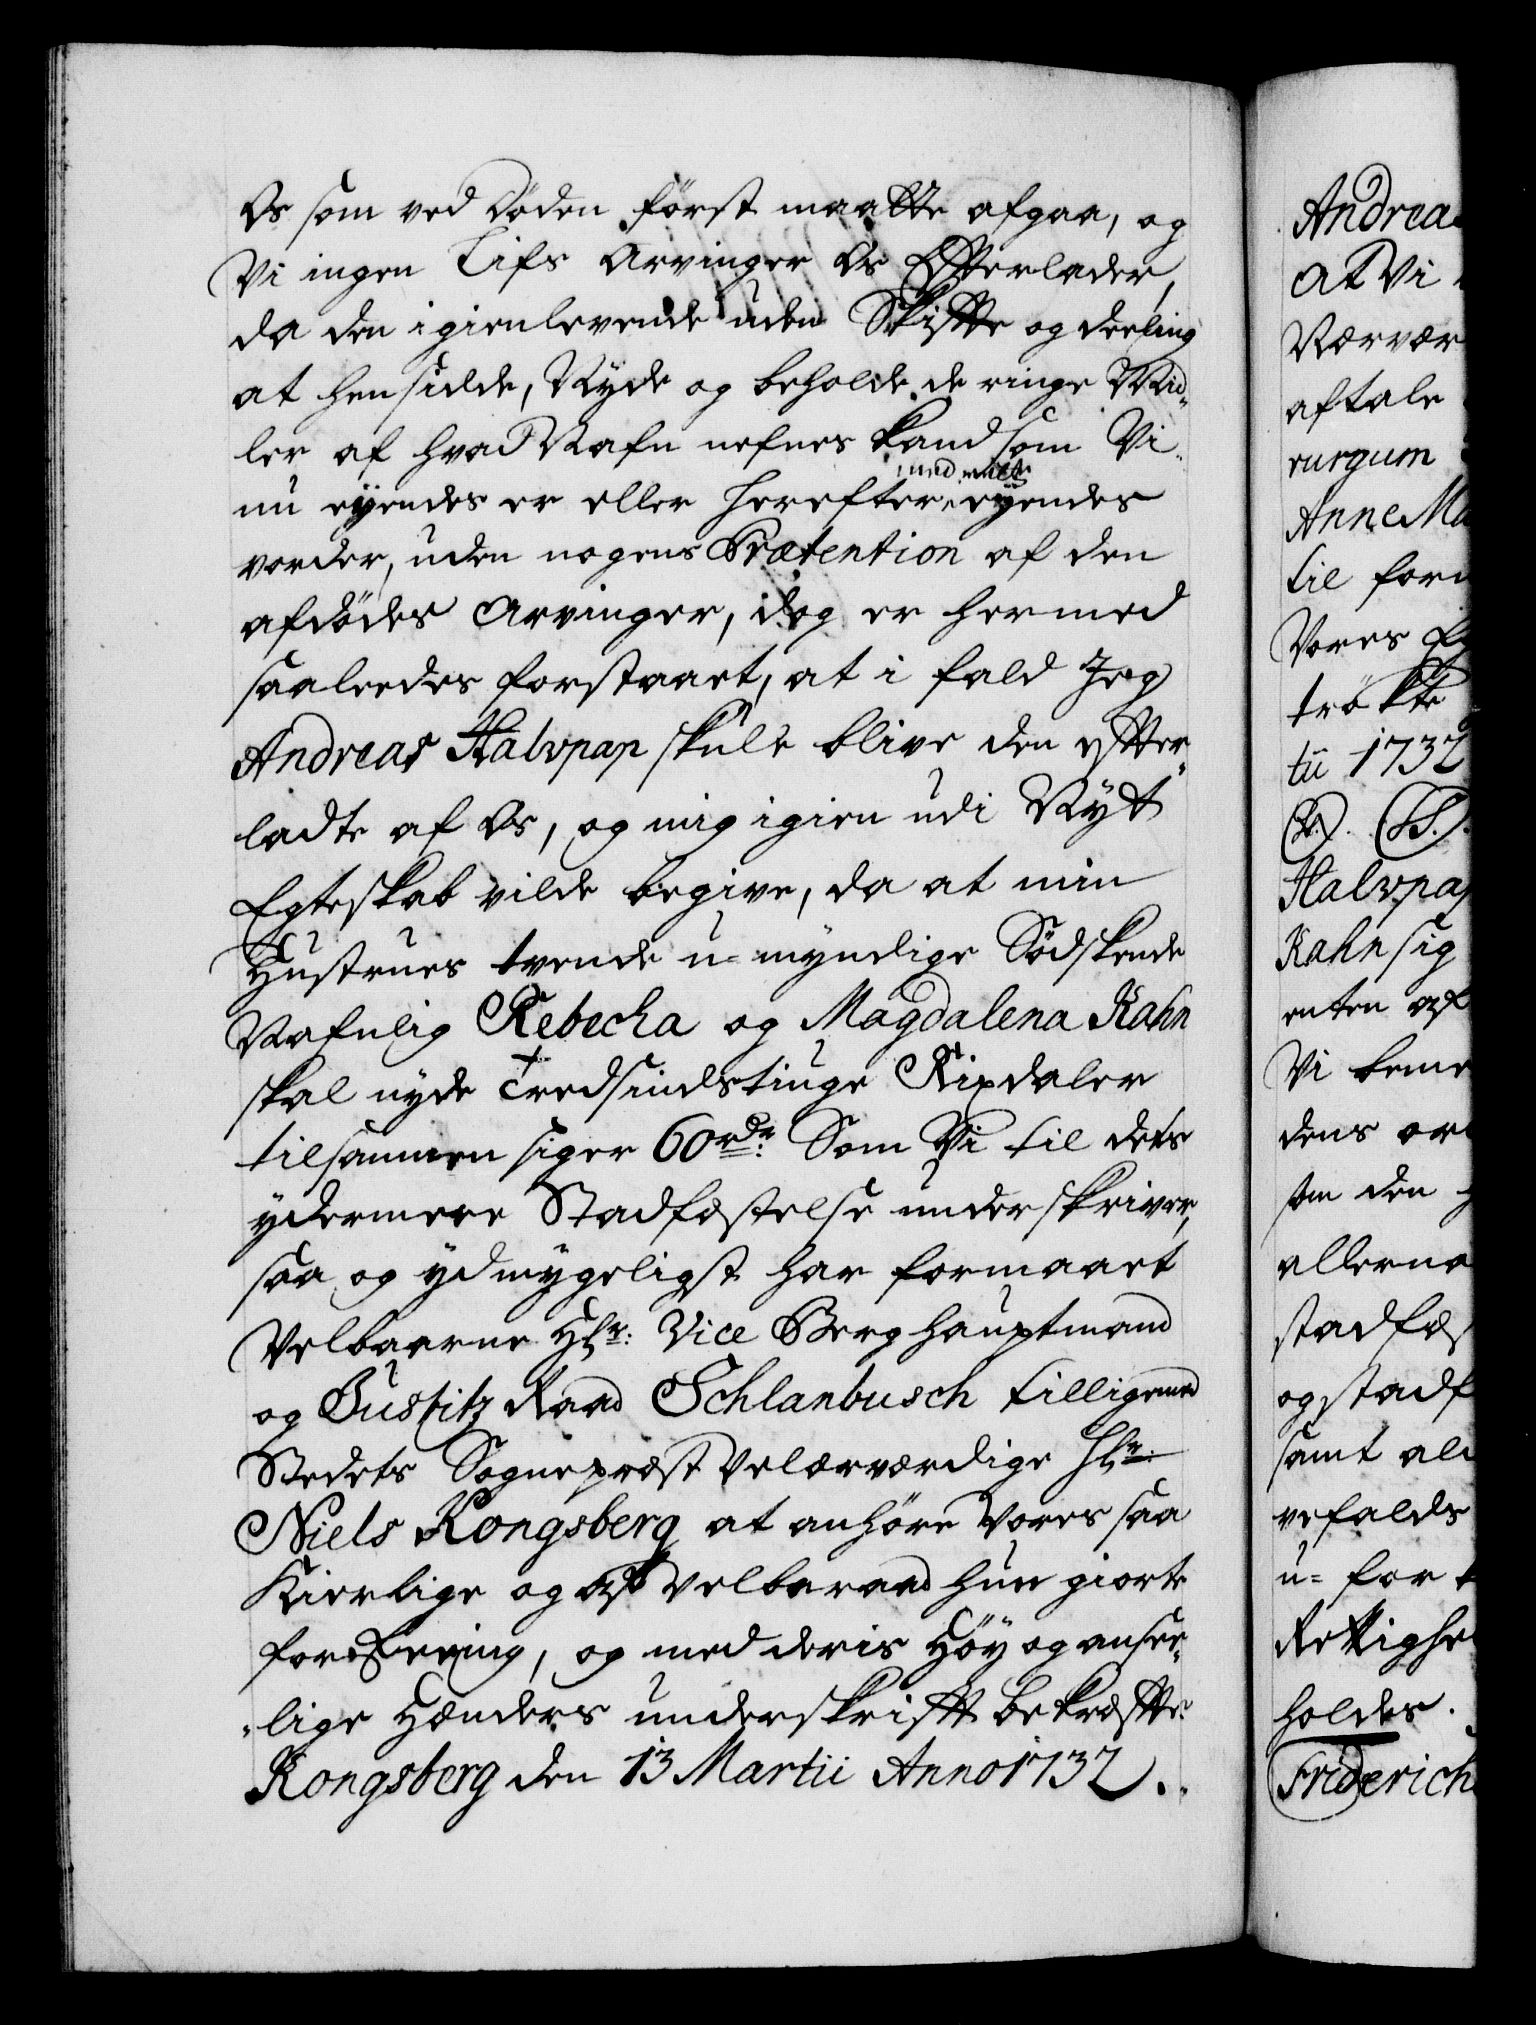 Os som ved Døden först maatte afgaa, og
Vi ingen Lifs Arvinger Os Efterlader,
da den igienlevende uden Skifte og deeling
at hensidde, Nyde og beholde de ringe Mid-
ler af hvad Nafn nefnes kand som Vi
nu eyendes er eller herefter eyendes
vorder, uden nogens Prætention af den
afdödes Arvinger, dog er hermed
saaleedes forstaaet, at i fald Jeg
Andreas Halvpap skule blive den efter-
ladte af Os, og mig igien udi Nyt
Egteskab vilde begive, da at min
Hustrues tvende u-myndige Södskende
Nafnlig Rebecha og Magdalena Rahn
skal nyde Tredsindstiuge Rixdaler
tilsammen siger 60 rdr: Som Vi til dets
ydermere Stadfæstelse underskriver,
saa og ydmygeligst har formaaet
Velbaarne Hr: Vice Berghauptmand
og Justitz Raad Schlanbusch tilligemed
Stedets Sogneprest Velærværdige Hr:
Niels Kongsberg at anhöre Vores saa
Kierlige og af Velberaad hue giorte
foreening, og med deris Höy og ansee-
lige Hænders underskrift bekræfte.
Kongsberg den 13 Martii Anno 1732.
Andrea
At Vi
Nærvær
aftale
rurgum
Anne Ma
til for
Vores
trökte
tii 1732
(L.). (S.).
Halvpap
Rahn sig
enten af
Vi beme
dens
som den
allerna
stadfæs
og stadf
samt al
vefalds
u-for
Rettighe
holdes.
Friderichs